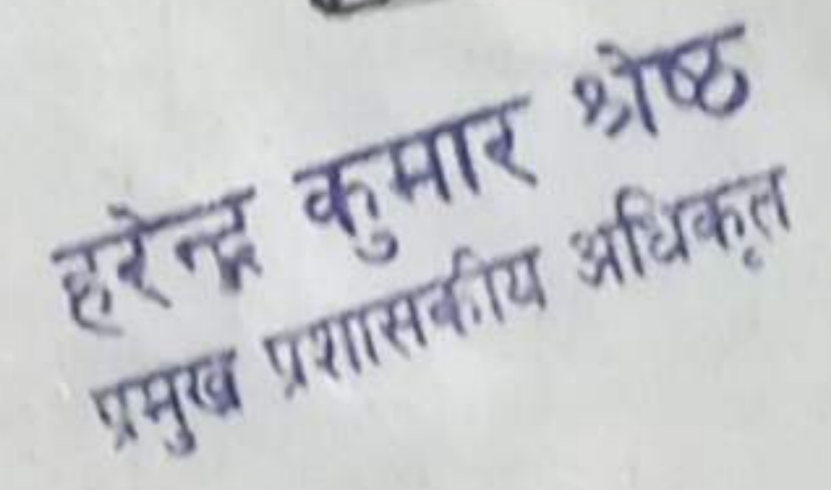 हरेन्द्र कुमार श्रेष्ठ
प्रमुख प्रशासकीय अधिकृत